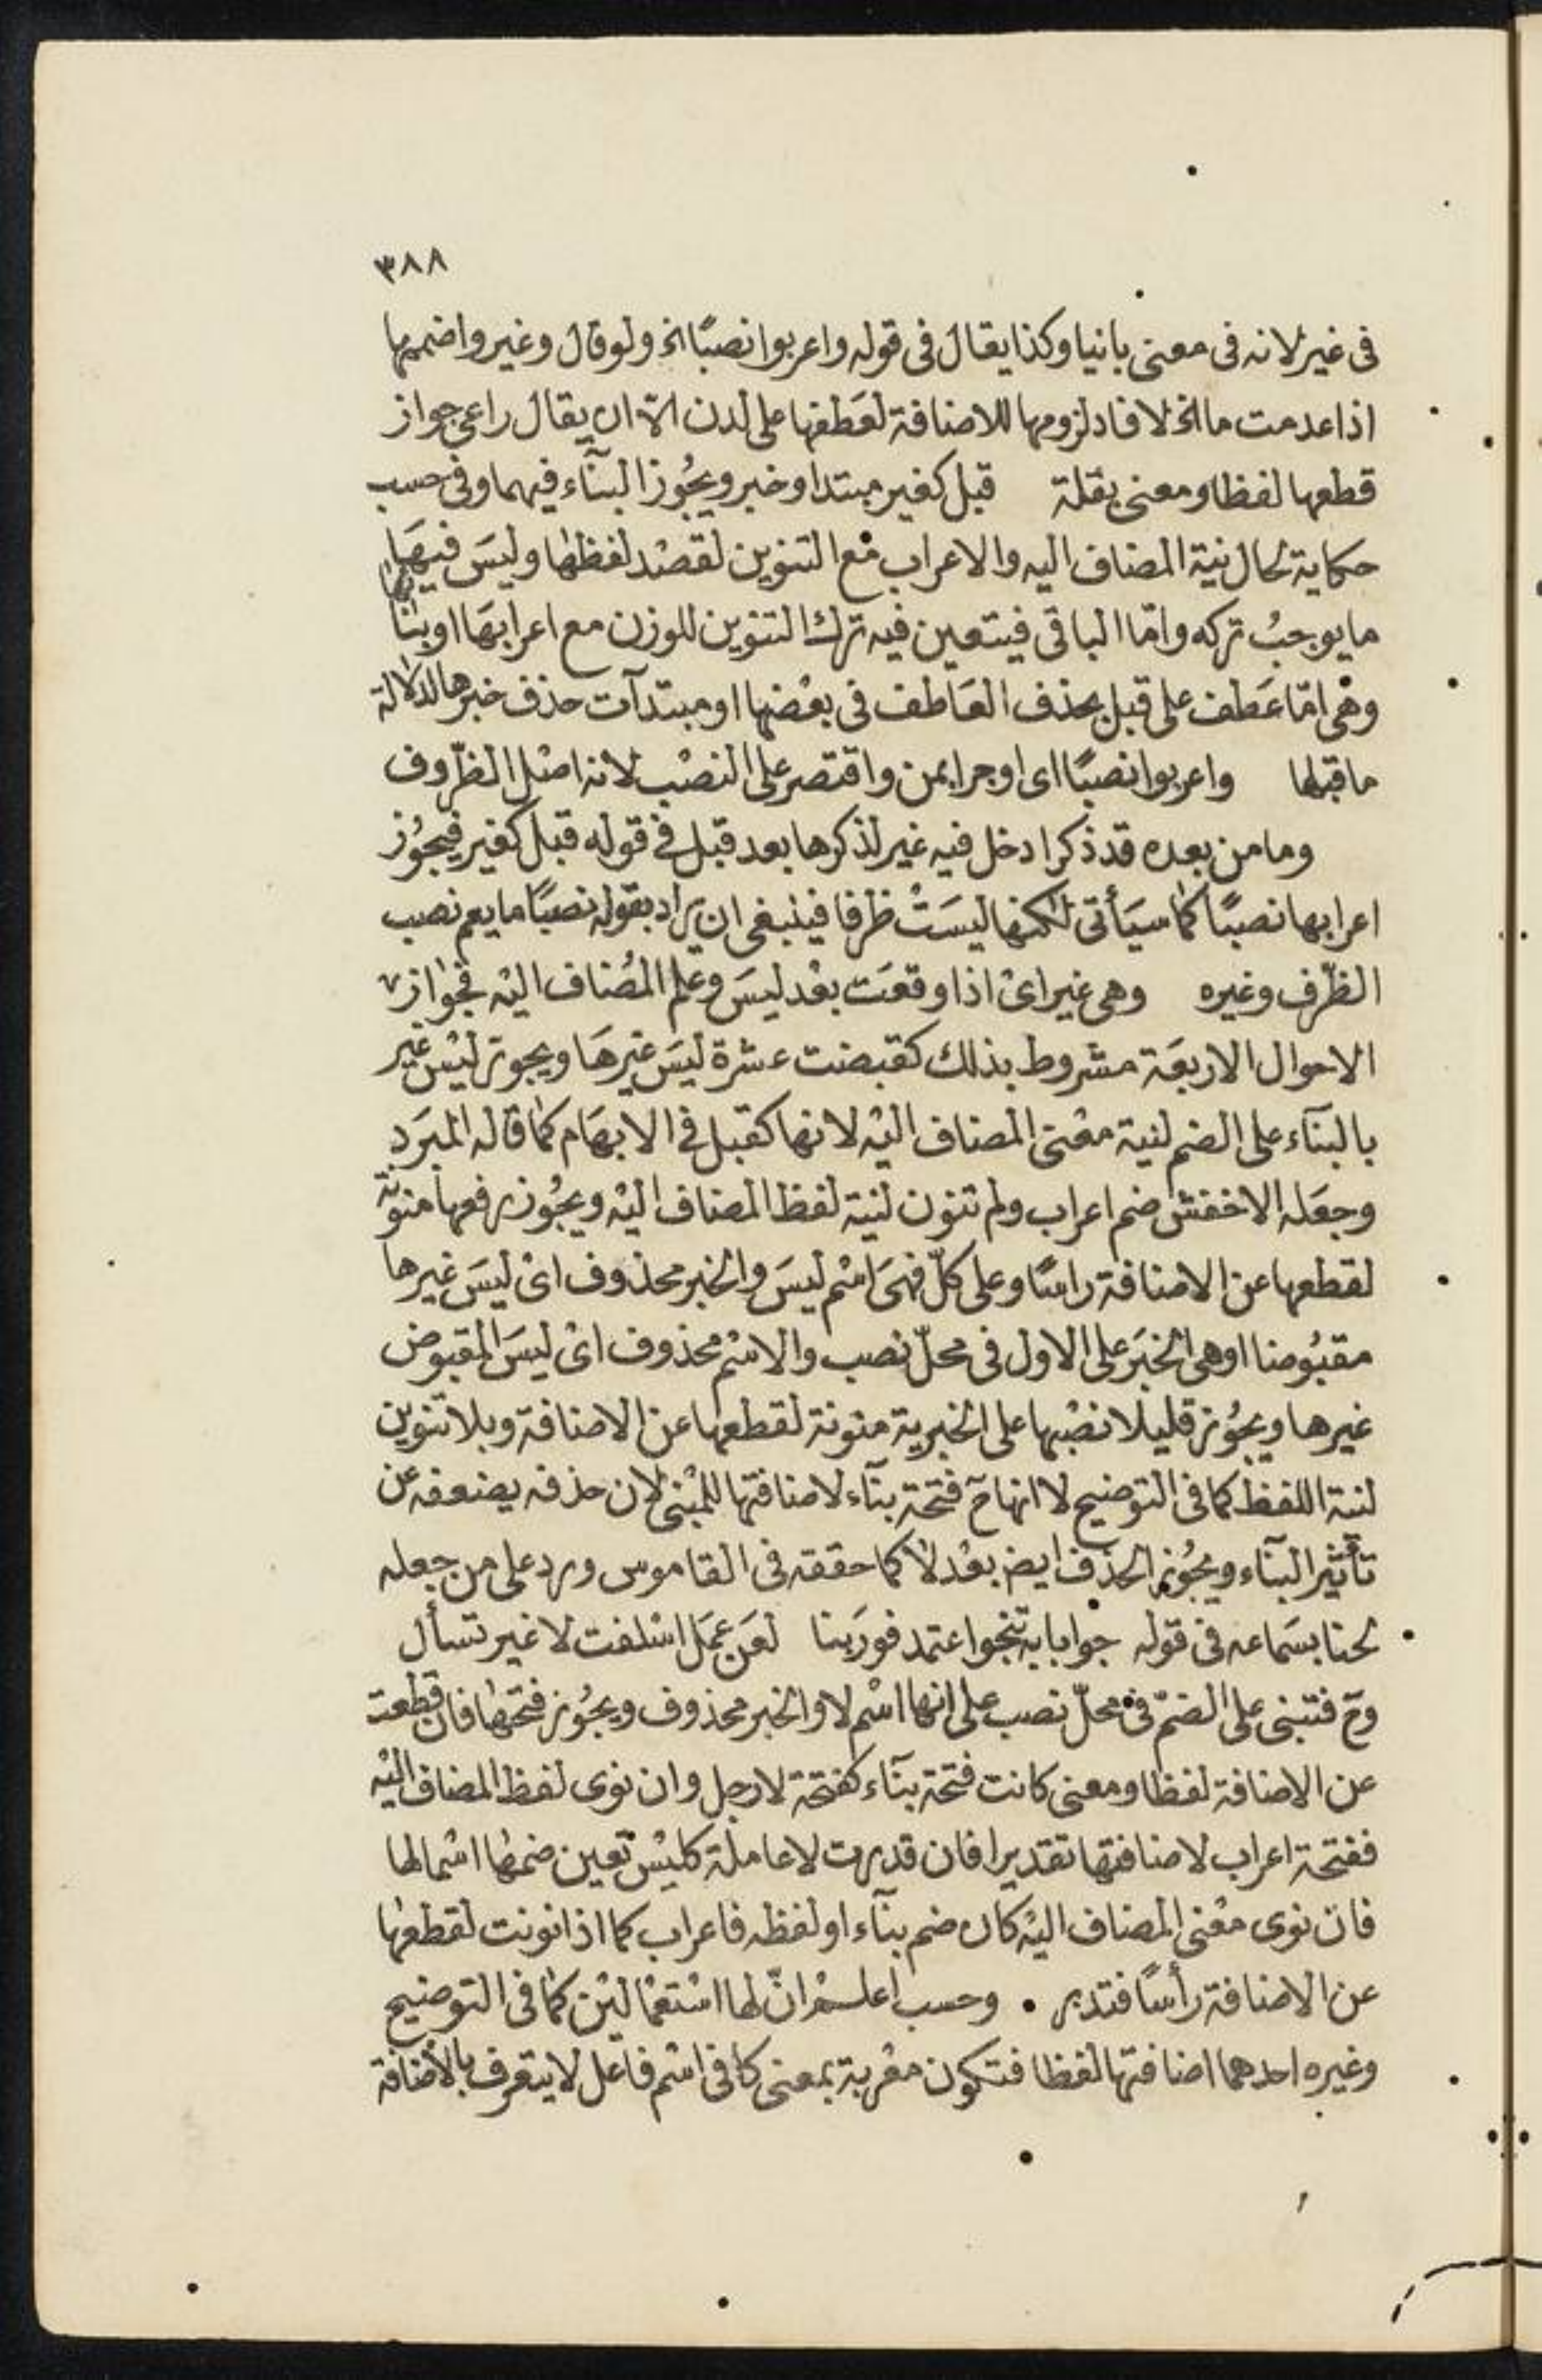 ٣٨٨
فى غير لانه فى معنى بانيا وكذا يقال فى قوله واعربوا نصبًا الخ ولو قال وغير واضممها
اذا عدمت ما الخ لافاد لزومها للاضافة لعطفها على لدن الا ان يقال راعى جواز
قطعها لفظا ومعنى بقلة قبل كغير مبتدا وخبر ويجُوز البنآء فيهما وفى حسب
حكاية لحال نية المضاف اليه والاعراب مع التنوين لقصْد لفظها وليسَ فيهَا
ما يوجبُ تركه وامّا الباقى فيتعين فيه ترك التنوين للوزن مع اعرابهَا او بنائها
وهى امّا عَطف على قبل بحذف العَاطف فى بعْضها او مبتدآت حذف خبرها لدلالة
ما قبلها واعربوا نصبًا اى او جرا بمن واقتصر على النصْب لانه اصْل الظّروف
وما من بعده قد ذكرا دخل فيه غير لذكرها بعد قبل فى قوله قبل كغير فيجُوز
اعرابها نصبًا كما سيَأتى لكنها ليسَتْ ظرفا فينبغى ان يراد بقوله نصبًا ما يعم نصب
الظّرف وغيره وهى غير اىْ اذا وقعَت بعْد ليسَ وعلم المُضاف اليْه فجواز
الاحوال الاربعَة مشروط بذلك كقبضت عشرة ليسَ غيرهَا ويجوز ليْس غير
بالبنآء على الضم لنية معْنى المضاف اليْه لانها كقبل فى الابهَام كما قاله المبرَد
وجعَله الاخفش ضم اعراب ولم تنون لنية لفظ المضاف اليْه ويجُوز رفعها منونة
لقطعها عن الاضافة راسًا وعلى كلّ فهىَ اسْم ليسَ والخبر محذوف اىْ ليسَ غيرها
مقبُوضا او هى الخبَر على الاول فى محلّ نصب والاسْم محذوف اىْ ليسَ المقبوض
غيرها ويجُوز قليلا نصْبها على الخبرية منونة لقطعها عن الاضافة وبلا تنوين
لنية اللفظ كما فى التوضيح لا انها ح فتحة بنآء لاضافتها للمبْنى لان حذفه يضعفه عن
تأثير البنآء ويجُوز الحذف ايض بعْد لا كما حققه فى القاموس ورد على من جعله
لحنا بسَماعه فى قوله جوابا به تنجوا عتمد فورَبنا لعَن عمَل اسْلفت لا غير تسأل
وح فتبنى على الضمّ فى محلّ نصب على انها اسْم لا والخبر محذوف ويجُوز فتحها فان قطعت
عن الاضافة لفظا ومعنى كانت فتحة بنآء كفتحة لا رجل وان نوى لفظ المضاف اليْه
ففتحة اعراب لاضافتها تقديرا فان قدرت لا عاملة كليْس تعين ضمها اسْما لها
فان نوى معْنى المضاف اليْه كان ضم بنآء او لفظه فاعراب كما اذا نونت لقطعها
عن الاضافة رأسًا فتدبر . وحسب اعلم انّ لها اسْتعْمالين كما فى التوضيح
وغيره احدهما اضافتها لفظا فتكون معْربة بمعنى كافى اسْم فاعل لا يتعرف بالاضافة